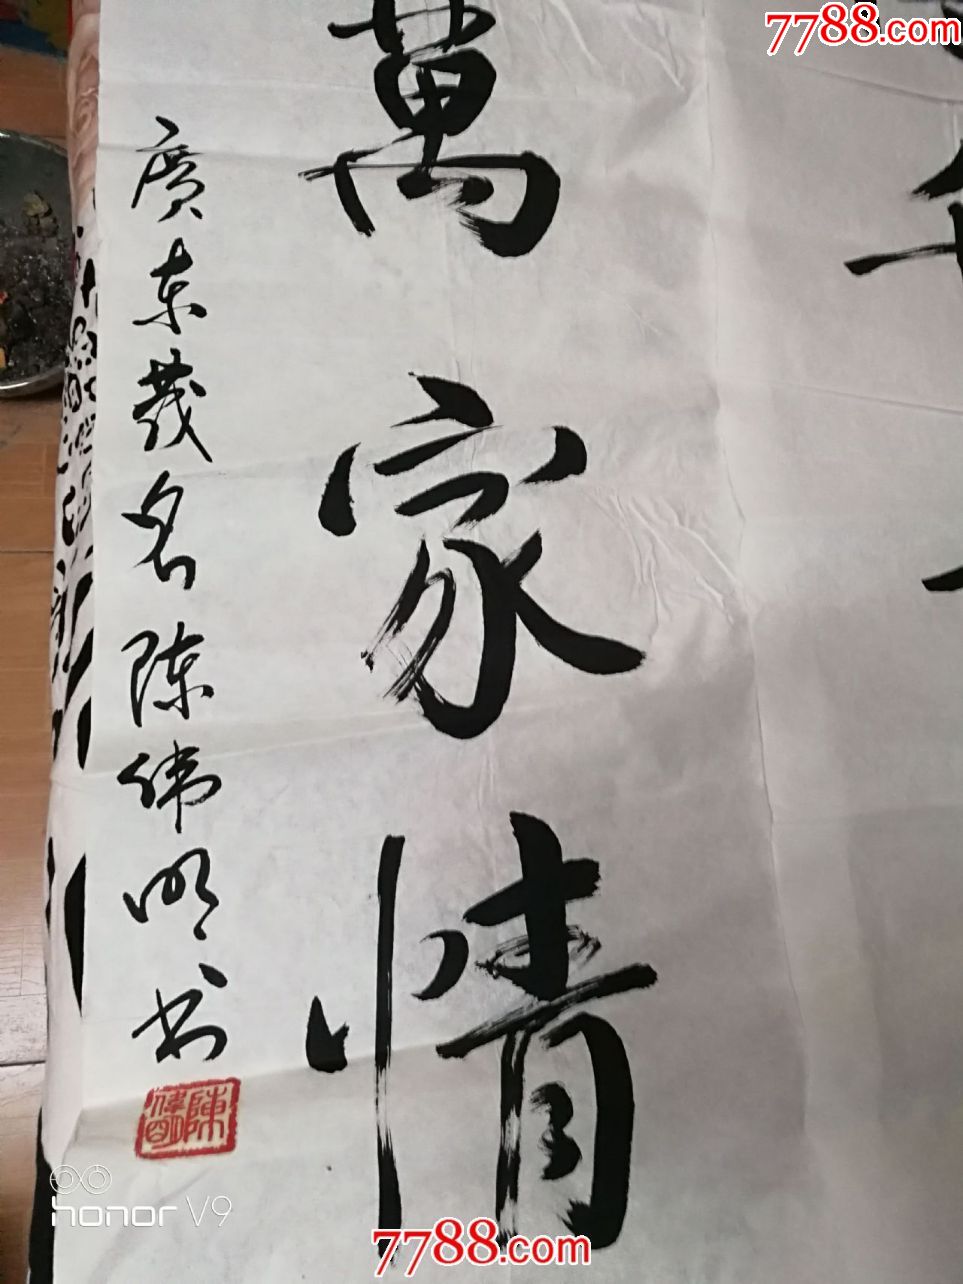 7788.com
萬家情
廣东茂名陈伟明书
陳偉明
honor V9
7788.com